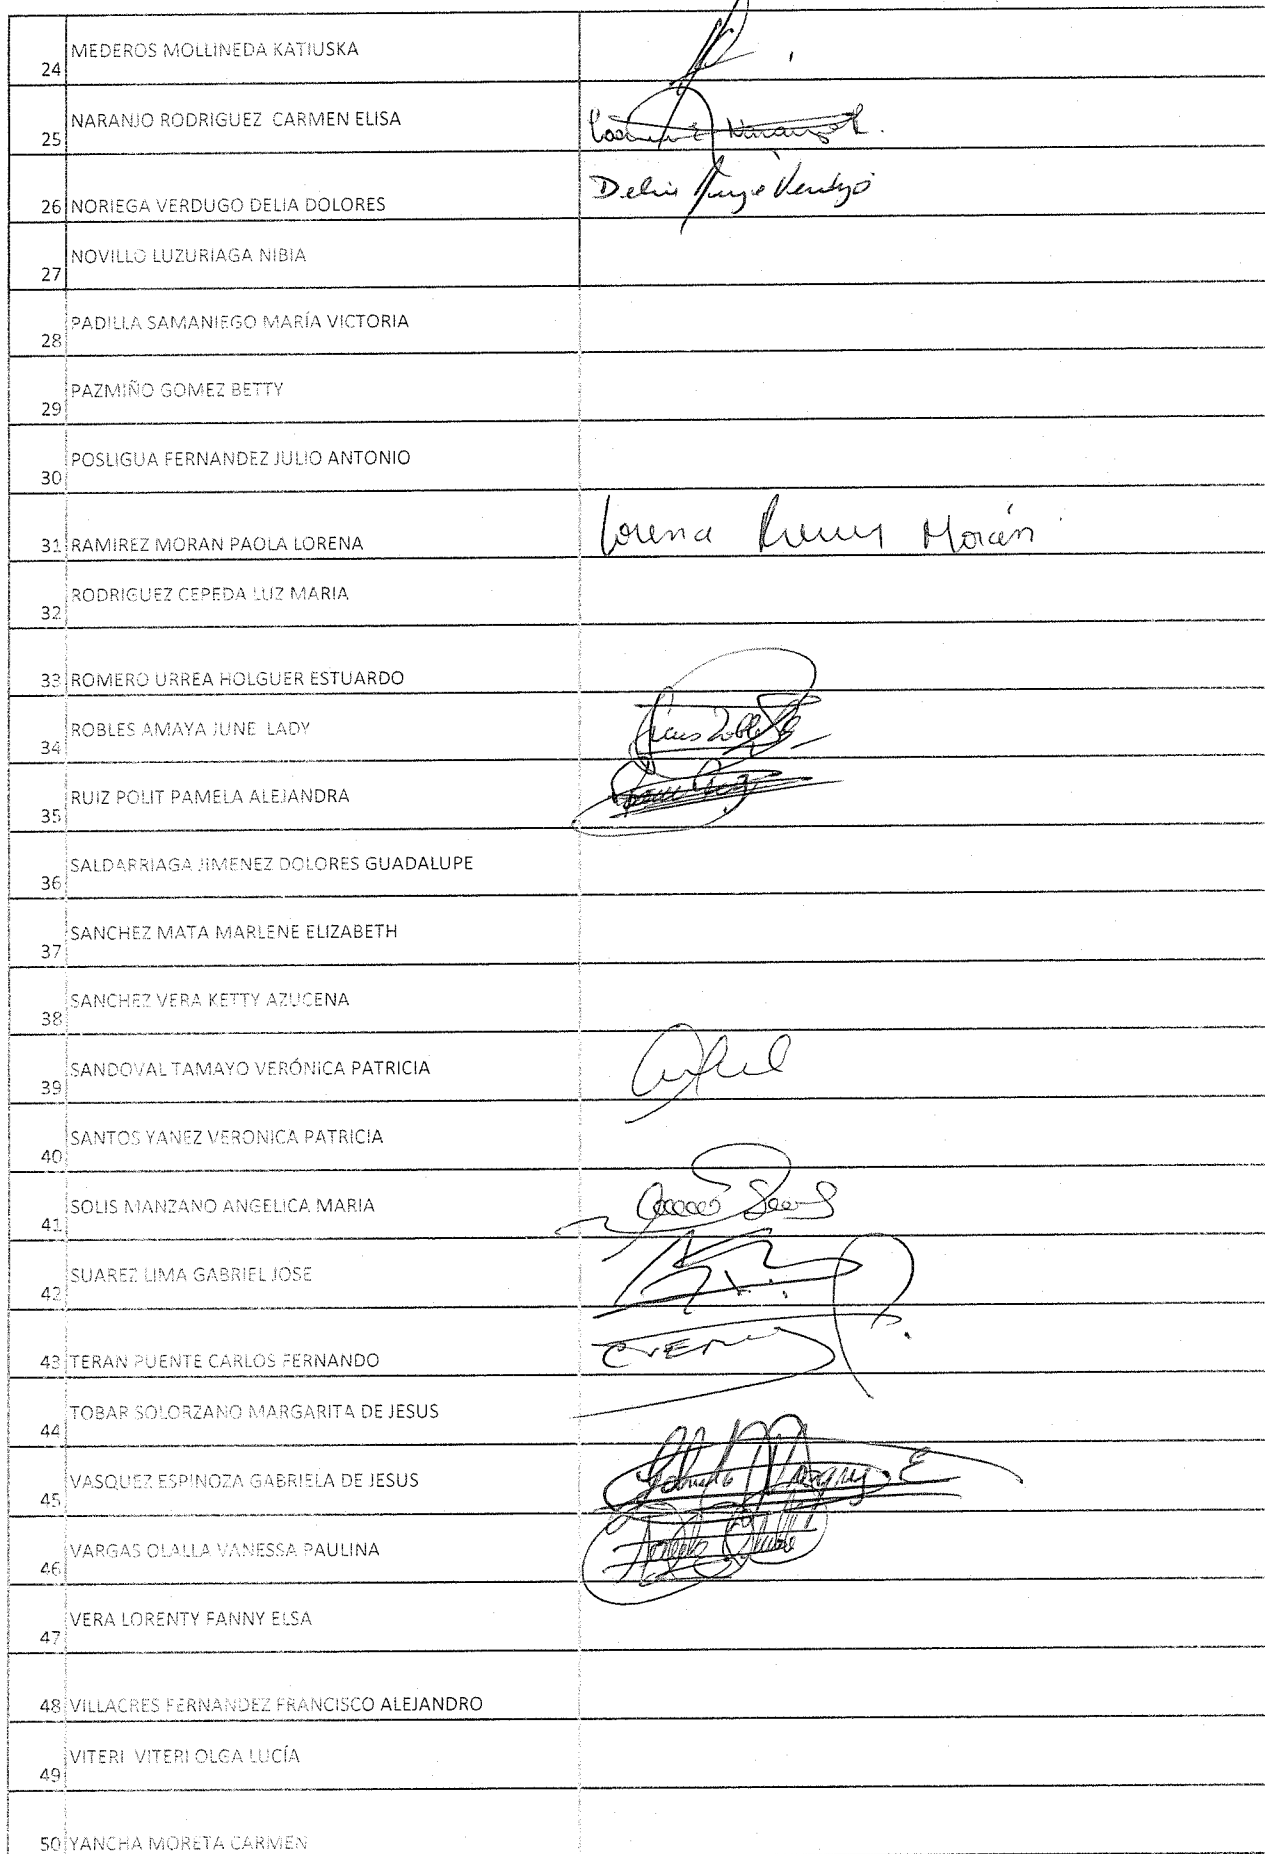 24 MEDEROS MOLLINEDA KATIUSKA
25 NARANJO RODRIGUEZ CARMEN ELISA
26 NORIEGA VERDUGO DELIA DOLORES Delia
27 NOVILLO LUZURIAGA NIBIA
28 PADILLA SAMANIEGO MARÍA VICTORIA
29 PAZMIÑO GOMEZ BETTY
30 POSLIGUA FERNANDEZ JULIO ANTONIO
31 RAMIREZ MORAN PAOLA LORENA Lorena Morán
32 RODRIGUEZ CEPEDA LUZ MARIA
33 ROMERO URREA HOLGUER ESTUARDO
34 ROBLES AMAYA JUNE LADY
35 RUIZ POLIT PAMELA ALEJANDRA
36 SALDARRIAGA JIMENEZ DOLORES GUADALUPE
37 SANCHEZ MATA MARLENE ELIZABETH
38 SANCHEZ VERA KETTY AZUCENA
39 SANDOVAL TAMAYO VERÓNICA PATRICIA
40 SANTOS YANEZ VERONICA PATRICIA
41 SOLIS MANZANO ANGELICA MARIA
42 SUAREZ LIMA GABRIEL JOSE
43 TERAN PUENTE CARLOS FERNANDO
44 TOBAR SOLORZANO MARGARITA DE JESUS
45 VASQUEZ ESPINOZA GABRIELA DE JESUS
46 VARGAS OLALLA VANESSA PAULINA
47 VERA LORENTY FANNY ELSA
48 VILLACRES FERNANDEZ FRANCISCO ALEJANDRO
49 VITERI VITERI OLGA LUCÍA
50 YANCHA MORETA CARMEN